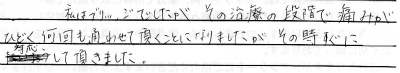 私はブリッジでしたが その治療の段階で痛みが
ひどく 何回も通わせて頂くことになりましたが その時すぐに
対応して頂きました。